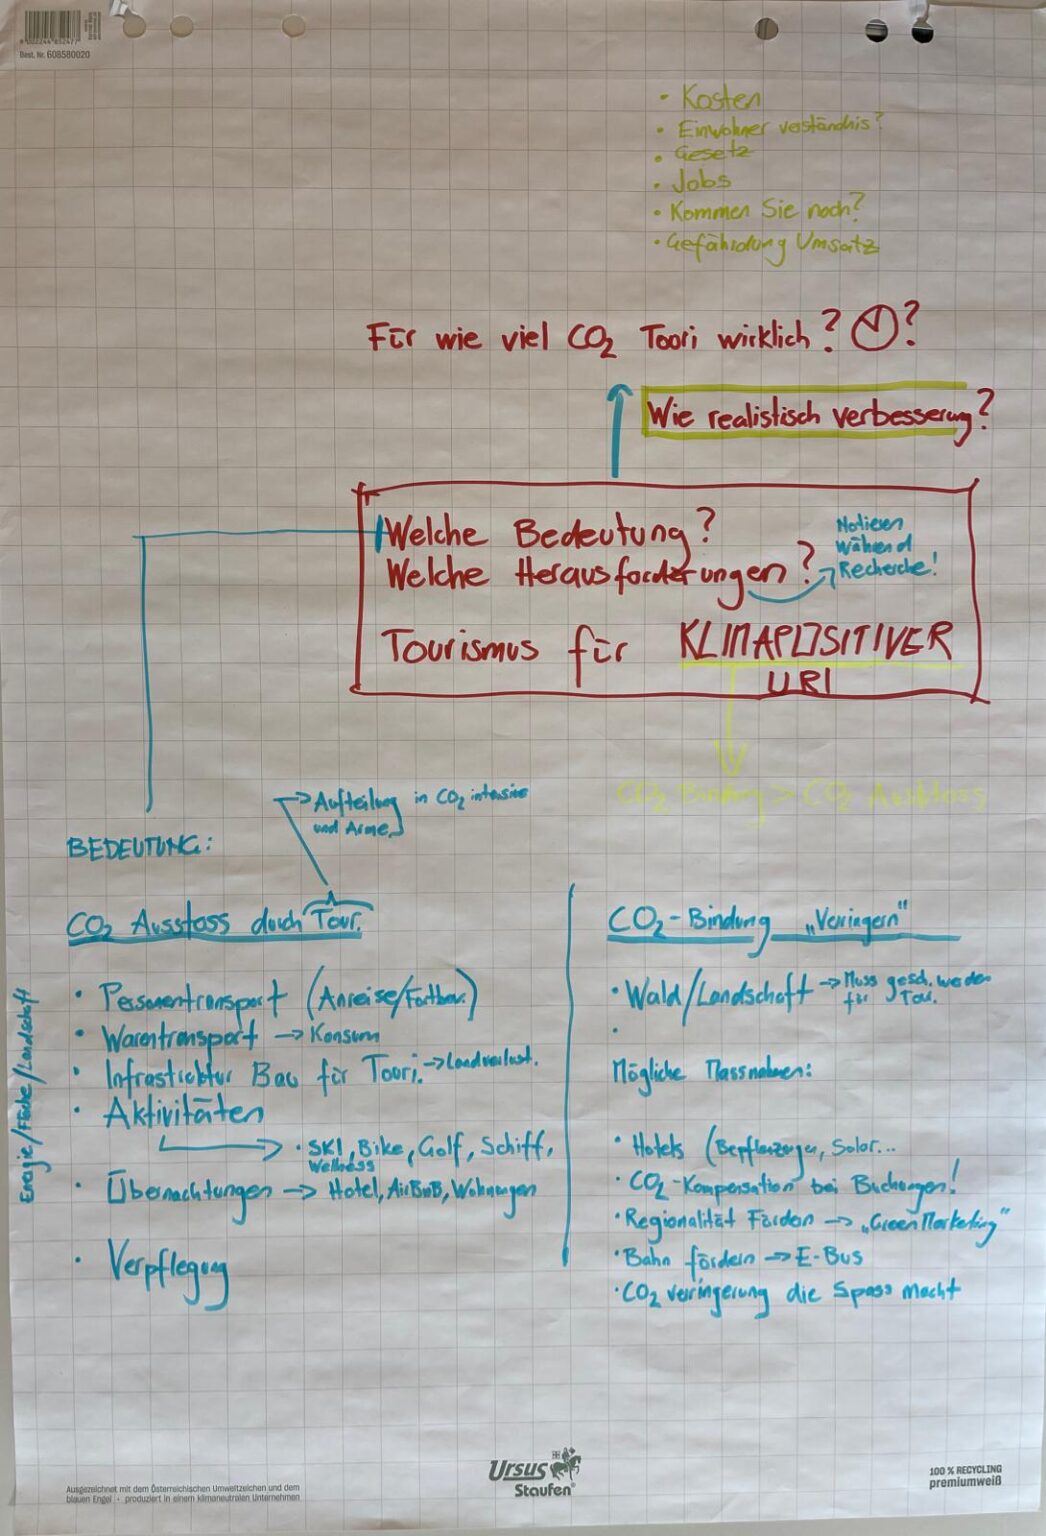 9002244852477
Best. Nr. 608580020
• Kosten
• Einwohner verständnis?
• Gesetz
• Jobs
• Kommen Sie noch?
• Gefährdung Umsatz
Für wie viel CO2 Toori wirklich? ?
Wie realistisch verbesserung?
Welche Bedeutung?
Welche Herausforderungen?
Notieren
Während
Recherche!
Tourismus für KLIMAPOSITIVER
URI
CO2 Bindung > CO2 Ausstoss
→ Aufteilung in CO2 intensive
und Arme
BEDEUTUNG:
CO2 Ausstoss durch Tour.
• Personentransport (Anreise/Fortbew.)
• Warentransport → Konsum
• Infrastruktur Bau für Touri. → Landverlust.
• Aktivitäten
→ • SKI, Bike, Golf, Schiff,
Wellness
• Übernachtungen → Hotel, AirBnB, Wohnungen
• Verpflegung
Energie/Fläche/Landschaft
CO2-Bindung „Verringern“
• Wald/Landschaft → Muss gesch. werden
für Tour.
•
Mögliche Massnahmen:
• Hotels (Bepflanzungen, Solar...
• CO2-Kompensation bei Buchungen!
• Regionalität Fördern → „Green Marketing“
• Bahn fördern → E-Bus
• CO2 verringerung die Spass macht
Ausgezeichnet mit dem Österreichischen Umweltzeichen und dem
blauen Engel • produziert in einem klimaneutralen Unternehmen
Ursus
Staufen®
100 % RECYCLING
premiumweiß